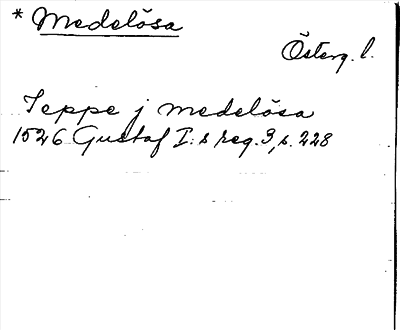 * Medelösa
Österg. l.
Jeppe j medelösa
1526 Gustaf I:s reg. 3, s. 228